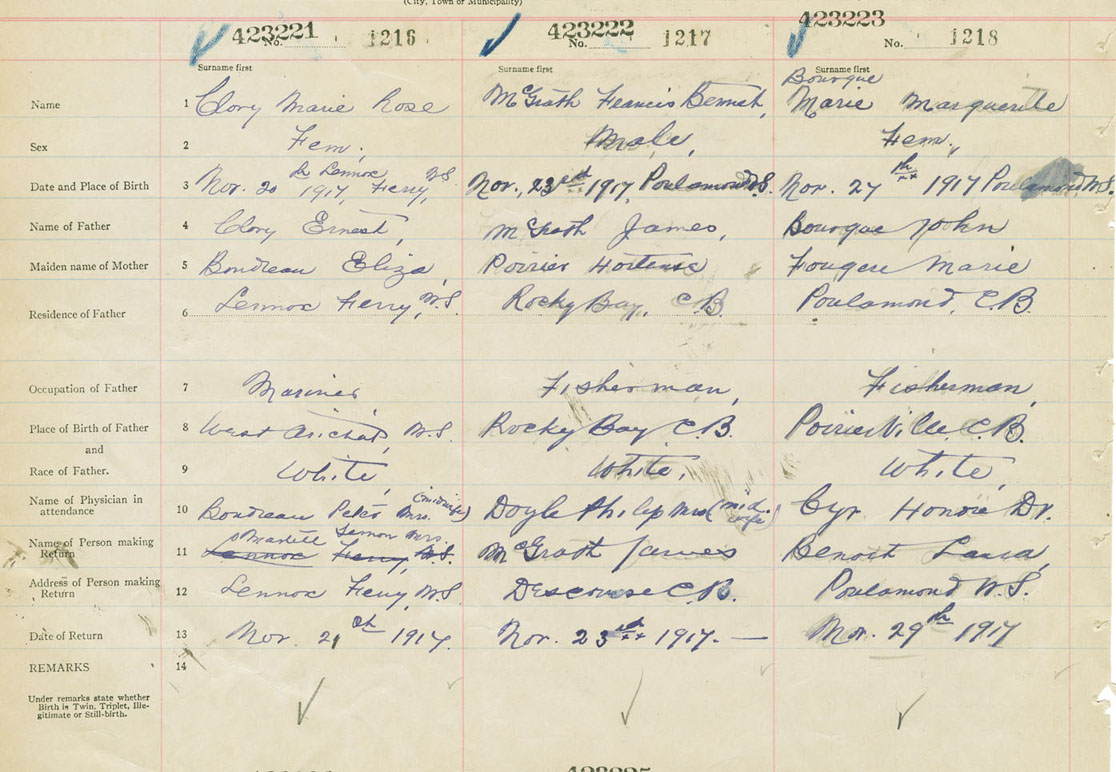 (City, Town or Municipality)
423221 423222 423223
No. 1216 No. 1217 No. 1218
Surname first Surname first Surname first
Bourque
Name 1 Clory Marie Rose McGrath Francis Benoit, Marie Marguerite
Sex 2 Fem. Male, Fem.,
Lennox N.S.
Date and Place of Birth 3 Nov. 20 1917, Ferry, Nov., 23rd 1917, Poulamond N.S. Nov. 27th 1917 Poulamond N.S.
Name of Father 4 Clory Ernest, McGrath James, Bourque John
Maiden name of Mother 5 Boudreau Eliza, Poirier Hortense Fougere Marie
Residence of Father 6 Lennox Ferry, N.S. Rocky Bay, C.B. Poulamond, C.B.
Occupation of Father 7 Mariner Fisherman, Fisherman,
Place of Birth of Father 8 West Arichat, N.S. Rocky Bay C.B. PoirierVille, C.B.
and
Race of Father. 9 White, White, White,
Name of Physician in
attendance 10 Boudreau Peter Mrs. (midwife) Doyle Philip Mrs (mid-wife) Cyr Honoré Dr.
Martell Simon Mrs.
Name of Person making
Return 11 Lennox Ferry, N.S. McGrath James Benoit Laura,
Address of Person making
Return 12 Lennox Ferry, N.S. Descousse C.B. Poulamond N.S.
Date of Return 13 Nov. 21th 1917. Nov. 23rd 1917. — Nov. 29th 1917
REMARKS 14
Under remarks state whether
Birth is Twin, Triplet, Ille-
gitimate or Still-birth.
423225